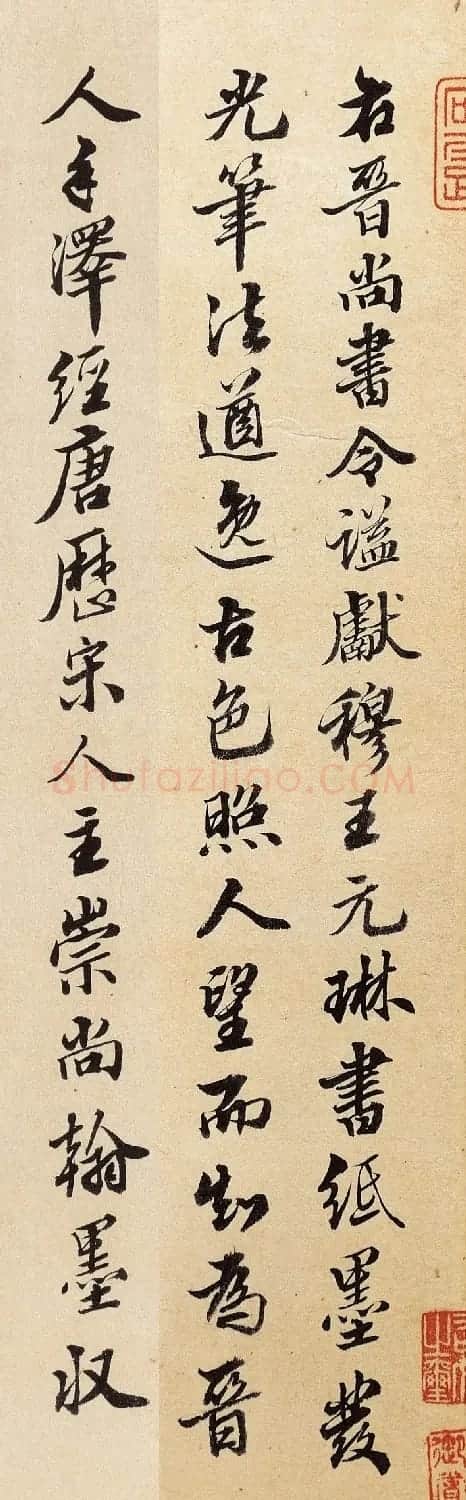 右晉尚書令謚獻穆王元琳書紙墨發
光筆法遒逸古色照人望而知為晉
人手澤經唐歷宋人主崇尚翰墨収
Shufaziliao.COM